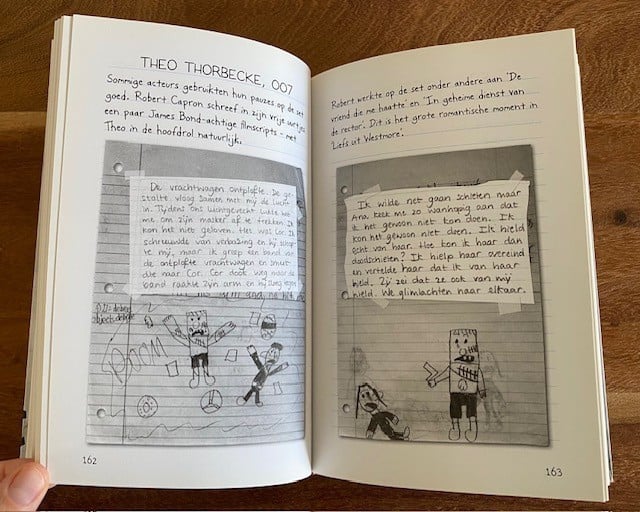 THEO THORBECKE, 007
Sommige acteurs gebruikten hun pauzes op de set
goed. Robert Capron schreef in zijn vrije uurtjes
een paar James Bond-achtige filmscripts – met
Theo in de hoofdrol natuurlijk.
De vrachtwagen ontplofte. De ge-
stalte vloog samen met mij de lucht
in. Tijdens ons luchtgevecht lukte het
me om zijn masker af te trekken. Ik
kon het niet geloven. Het was Cor. Ik
schreeuwde van verbazing en hij
me mij, maar ik greep een band van
de ontplofte vrachtwagen en smeet
die naar Cor. Cor dook weg maar de
band raakte zijn arm en hij
BOOM
162
Robert werkte op de set onder andere aan 'De
vriend die me haatte' en 'In geheime dienst van
de rector'. Dit is het grote romantische moment in
'Liefs uit Westmore'.
Ik wilde net gaan schieten maar
Ana keek me zo wanhopig aan dat
ik het gewoon niet kon doen. Ik
kon het gewoon niet doen. Ik hield
echt van haar. Hoe kon ik haar dan
doodschieten? Ik hielp haar overeind
en vertelde haar dat ik van haar
hield. Zij zei dat ze ook van mij
hield. We glimlachten naar elkaar.
163